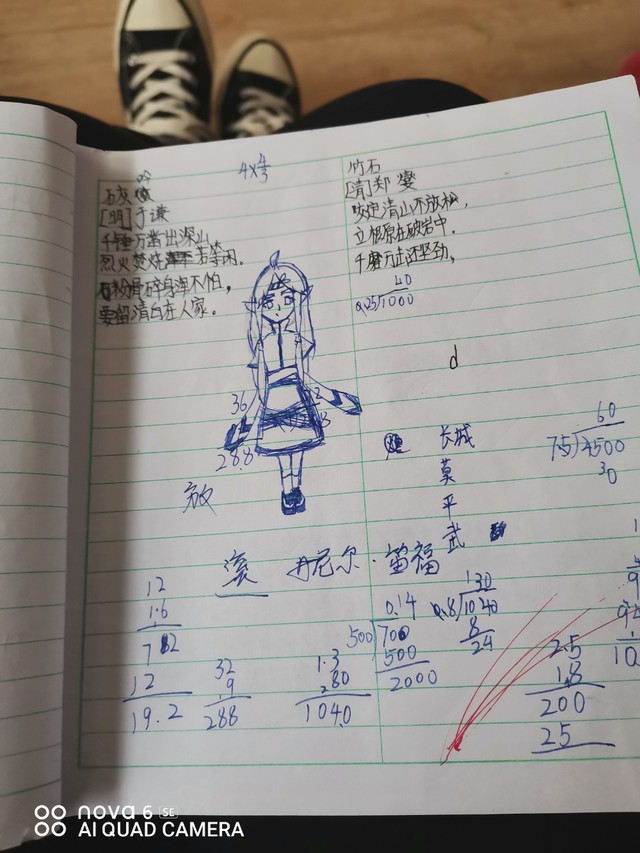 石灰吟
[明]于谦
千锤万凿出深山,
烈火焚烧若等闲。
粉骨碎身浑不怕,
要留清白在人家。
4×4/3
竹石
[清]郑燮
咬定清山不放松,
立根原在破岩中。
千磨万击还坚劲,
40
0.25)1000
d
36
28.8
放
长城
莫
平
武
60
75)4500
30
滚
丹尼尔·笛福
12
1.6
72
12
19.2
32
.9
288
1.3
80
1040
0.14
500)700
500
2000
130
0.8)1040
8
24
25
1.8
200
25
nova 6 SE
AI QUAD CAMERA